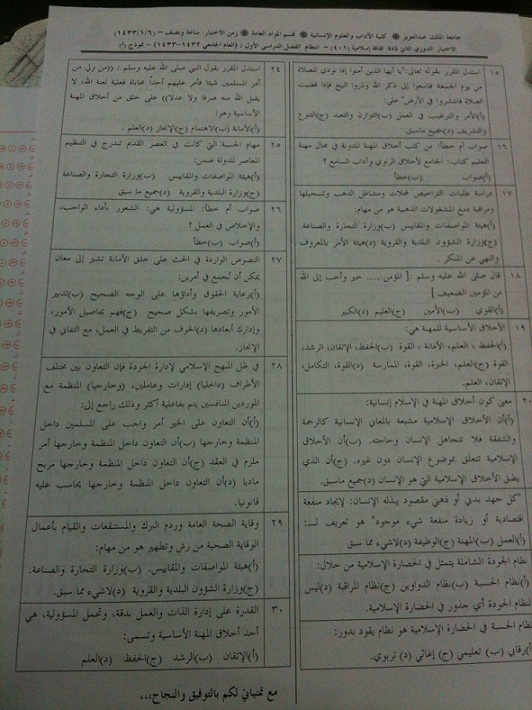 جامعة الملك عبدالعزيز ❋ كلية الآداب والعلوم الإنسانية ❋ قسم المواد العامة ❋ زمن الاختبار: ساعة ونصف – (١٤٣٣/١/٦)
الاختبار الدوري الثاني لمادة: ثقافة إسلامية (٤٠١) – انتظام الفصل الدراسي الأول: (العام الجامعي ١٤٣٢-١٤٣٣) – نموذج (أ)
١٥ استدل المقرر بقوله تعالى: "يا أيها الذين آمنوا إذا نودي للصلاة
من يوم الجمعة فاسعوا إلى ذكر الله وذروا البيع فإذا قضيت
الصلاة فانتشروا في الأرض" على:
(أ)الأمر والترغيب في العمل (ب)التوازن والتعبد (ج)التنوع
والتشريف (د)جميع ماسبق
١٦ صواب أم خطأ: من كتب أخلاق المهنة المدونة في مجال مهنة
التعليم كتاب: الجامع لأخلاق الراوي وآداب السامع ؟
(أ)صواب (ب)خطأ
١٧ دراسة طلبات التراخيص لمحلات ومشاغل الذهب وتسجيلها
ومراقبة دمغ المشغولات الذهبية هو من مهام:
(أ)هيئة المواصفات والمقاييس (ب)وزارة التجارة والصناعة.
(ج)وزارة الشؤون البلدية والقروية (د)هيئة الأمر بالمعروف
والنهي عن المنكر .
١٨ قال صلى الله عليه وسلم :[ المؤمن .... خير وأحب إلى الله
من المؤمنين الضعيف ]
(أ)القوي (ب)الأمين (ج)العليم (د)الكبير
١٩ الأخلاق الأساسية للمهنة هي:
(أ)الحفظ ، العلم، الأمانة ، القوة (ب)الحفظ، الإتقان، الرشد،
القوة (ج)العلم، الخبرة، القوة، الممارسة (د)القوة، التكامل،
الإتقان، العلم.
٢٠ معنى كون أخلاق المهنة في الإسلام إنسانية:
(أ)أن الأخلاق الإسلامية مشبعة بالمعاني الإنسانية كالرحمة
والشفقة فلا تتجاهل الإنسان وحاجته. (ب)أن الأخلاق
الإسلامية تتعلق بموضوع الإنسان دون غيره. (ج)أن الذي
يطبق الأخلاق الإسلامية التي هو الإنسان (د)جميع ماسبق.
كل جهد بدني أو ذهني مقصود يبذله الإنسان: لإيجاد منفعة
اقتصادية أو زيادة منفعة شيء موجود" هو تعريف لـ:
(أ)العمل (ب)المهنة (ج)الوظيفة (د)لاشيء مما سبق
نظام الجودة الشاملة يتمثل في الحضارة الإسلامية من خلال:
(أ)نظام الحسبة (ب)نظام الدواوين (ج)نظام المراقبة (د)ليس
لنظام الجودة أي جذور في الحضارة الإسلامية.
نظام الحسبة في الحضارة الإسلامية هو نظام يقود بدور:
(أ)رقابي (ب) تعليمي (ج) إغاثي (د) تربوي.
٢٤ استدل المقرر بقول النبي صلى الله عليه وسلم : ((من ولي من
أمر المسلمين شيئا فأمر عليهم أحدا محاباة فعليه لعنة الله؛ لا
يقبل الله منه صرفا ولا عدلا)) على خلق من أخلاق المهنة
الأساسية وهو:
(أ)الأمانة (ب)الاهتمام (ج)الإنجاز (د)العلم .
٢٥ مهام الحسبة التي كانت في العصر القديم تندرج في التنظيم
المعاصر للدولة ضمن:
(أ)هيئة المواصفات والمقاييس (ب)وزارة التجارة والصناعة
(ج)وزارة البلدية والقروية (د)جميع ما سبق
٢٦ صواب أم خطأ: المسؤولية هي: الشعور بأداء الواجب،
والإخلاص في العمل ؟
(أ)صواب (ب)خطأ
٢٧ النصوص الواردة في الحث على خلق الأمانة تشير إلى معان
يمكن أن تُجمع في أمرين:
(أ)رعاية الحقوق وأداؤها على الوجه الصحيح (ب)تدبير
الأمور وتصريفها بشكل صحيح (ج)فهم تفاصيل الأمور،
وإدراك أبعادها (د)الخوف من التفريط في العمل، مع التفاني في
الإنجاز.
٢٨ في ظل المنهج الإسلامي لإدارة الجودة فإن التعاون بين مختلف
الأطراف (داخليا) إدارات وعاملين، (وخارجيا) المنظمة مع
الموردين المنافسين يتم بفاعلية أكثر وذلك راجع إلى:
(أ)أن التعاون على الخير أمر واجب على المسلمين داخل
المنظمة وخارجها (ب)أن التعاون داخل المنظمة وخارجها أمر
ملزم في العقد (ج)أن التعاون داخل المنظمة وخارجها مربح
ماديا (د)أن التعاون داخل المنظمة وخارجها يحاسب عليه
قانونيا.
٢٩ وقاية الصحة العامة وردم البرك والمستنقعات والقيام بأعمال
الوقاية الصحية من رش وتطهير هو من مهام:
(أ)هيئة المواصفات والمقاييس. (ب)وزارة التجارة والصناعة.
(ج)وزارة الشؤون البلدية والقروية (د)لاشيء مما سبق.
٣٠ القدرة على إدارة الذات والعمل بدقة، وتحمل المسؤولية، هي
أحد أخلاق المهنة الأساسية وتسمى:
(أ)الإتقان (ب)الرشد (ج)الحفظ (د)العلم
مع تمنياتي لكم بالتوفيق والنجاح،،،